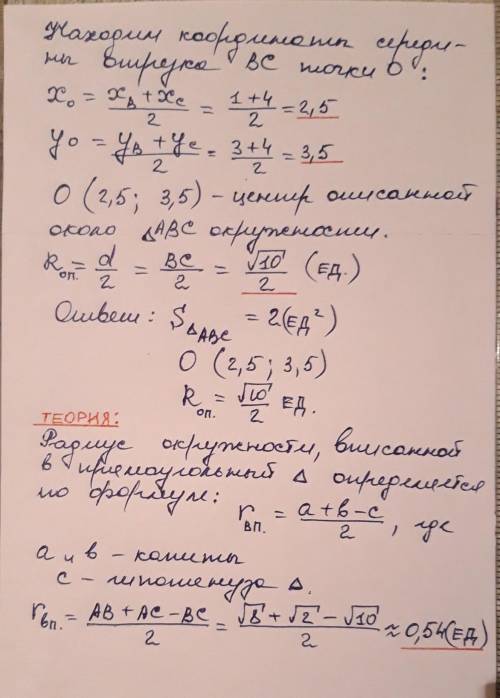 Находим координаты середи-
ны отрезка BC точки O:
x₀ = (x_B + x_C)/2 = (1+4)/2 = 2,5
y₀ = (y_B + y_C)/2 = (3+4)/2 = 3,5
O (2,5; 3,5) – центр описанной
около △ABC окружности.
R_оп. = d/2 = BC/2 = √10/2 (ЕД.)
Ответ: S_△ABC = 2(ЕД²)
O (2,5; 3,5)
R_оп. = √10/2 ЕД.
ТЕОРИЯ:
Радиус окружности, вписанной
в прямоугольный △ определяется
по формуле:
r_вп. = (a+b–c)/2, где
a и b – катеты
c – гипотенуза △.
r_вп. = (AB + AC – BC)/2 = (√8 + √2 – √10)/2 ≈ 0,54(ЕД)